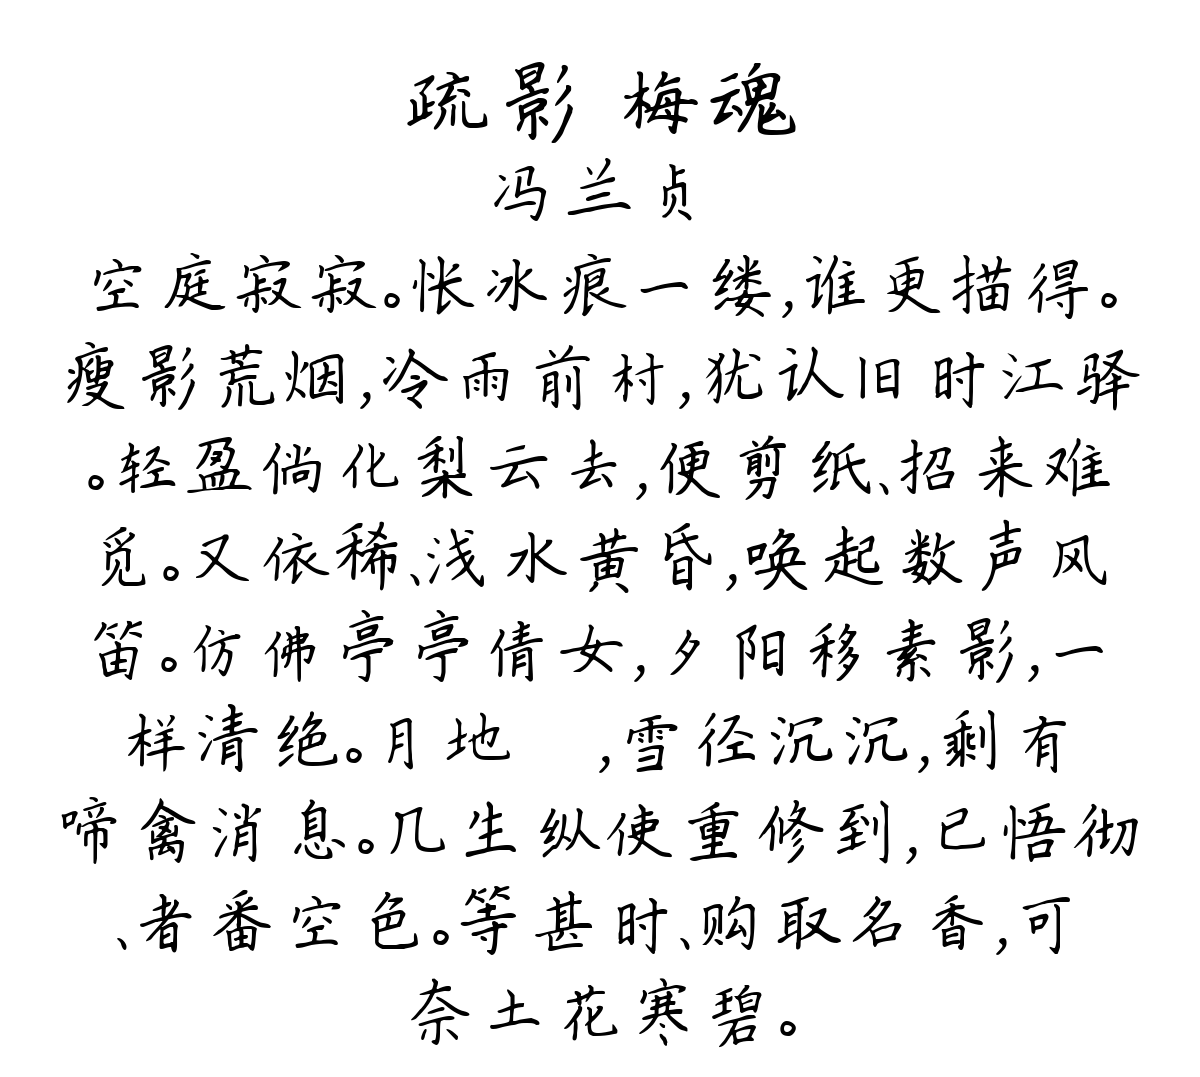 疏影 梅魂
冯兰贞
空庭寂寂。怅冰痕一缕,谁更描得。
瘦影荒烟,冷雨前村,犹认旧时江驿
。轻盈倘化梨云去,便剪纸、招来难
觅。又依稀、浅水黄昏,唤起数声风
笛。仿佛亭亭倩女,夕阳移素影,一
样清绝。月地 ,雪径沉沉,剩有
啼禽消息。几生纵使重修到,已悟彻
、者番空色。等甚时、购取名香,可
奈土花寒碧。